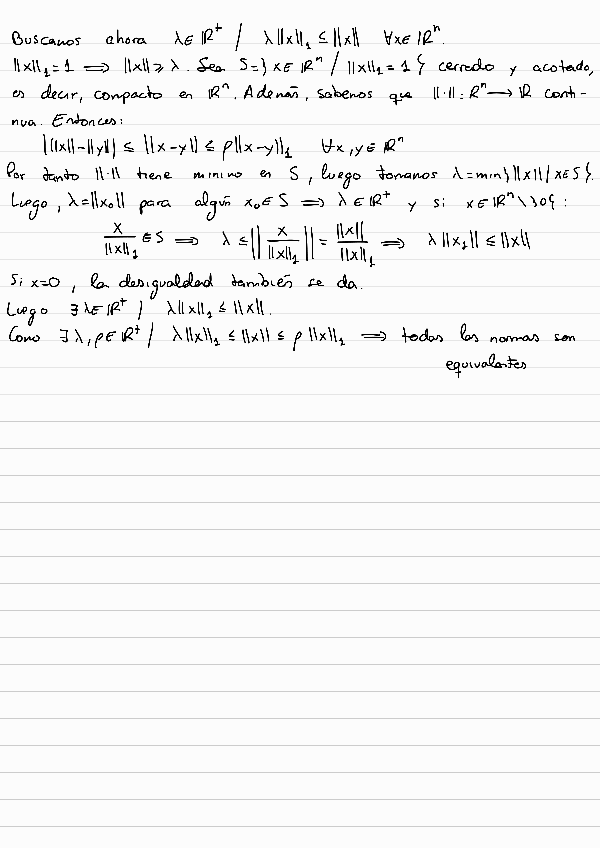 Buscamos ahora λ∈ℝ⁺ / λ||x||₁ ≤ ||x|| ∀x∈ℝⁿ.
||x||₁ = 1 ⟹ ||x|| ≥ λ. Sea S = } x∈ℝⁿ / ||x||₁ = 1 { cerrado y acotado,
es decir, compacto en ℝⁿ. Además, sabemos que ||·||: ℝⁿ ⟶ ℝ conti-
nua. Entonces:
| ||x|| - ||y|| | ≤ ||x-y|| ≤ ρ||x-y||₁ ∀x,y∈ℝⁿ
Por tanto ||·|| tiene mínimo en S, luego tomamos λ = min } ||x|| / x∈S {.
Luego, λ = ||x₀|| para algún x₀∈S ⟹ λ∈ℝ⁺ y si x∈ℝⁿ \ }0{ :
x/||x||₁ ∈ S ⟹ λ ≤ || x/||x||₁ || = ||x||/||x||₁ ⟹ λ||x₁|| ≤ ||x||
Si x=0, la desigualdad también se da.
Luego ∃λ∈ℝ⁺ / λ||x||₁ ≤ ||x||.
Como ∃λ,ρ∈ℝ⁺ / λ||x||₁ ≤ ||x|| ≤ ρ||x||₁ ⟹ todas las normas son
equivalentes